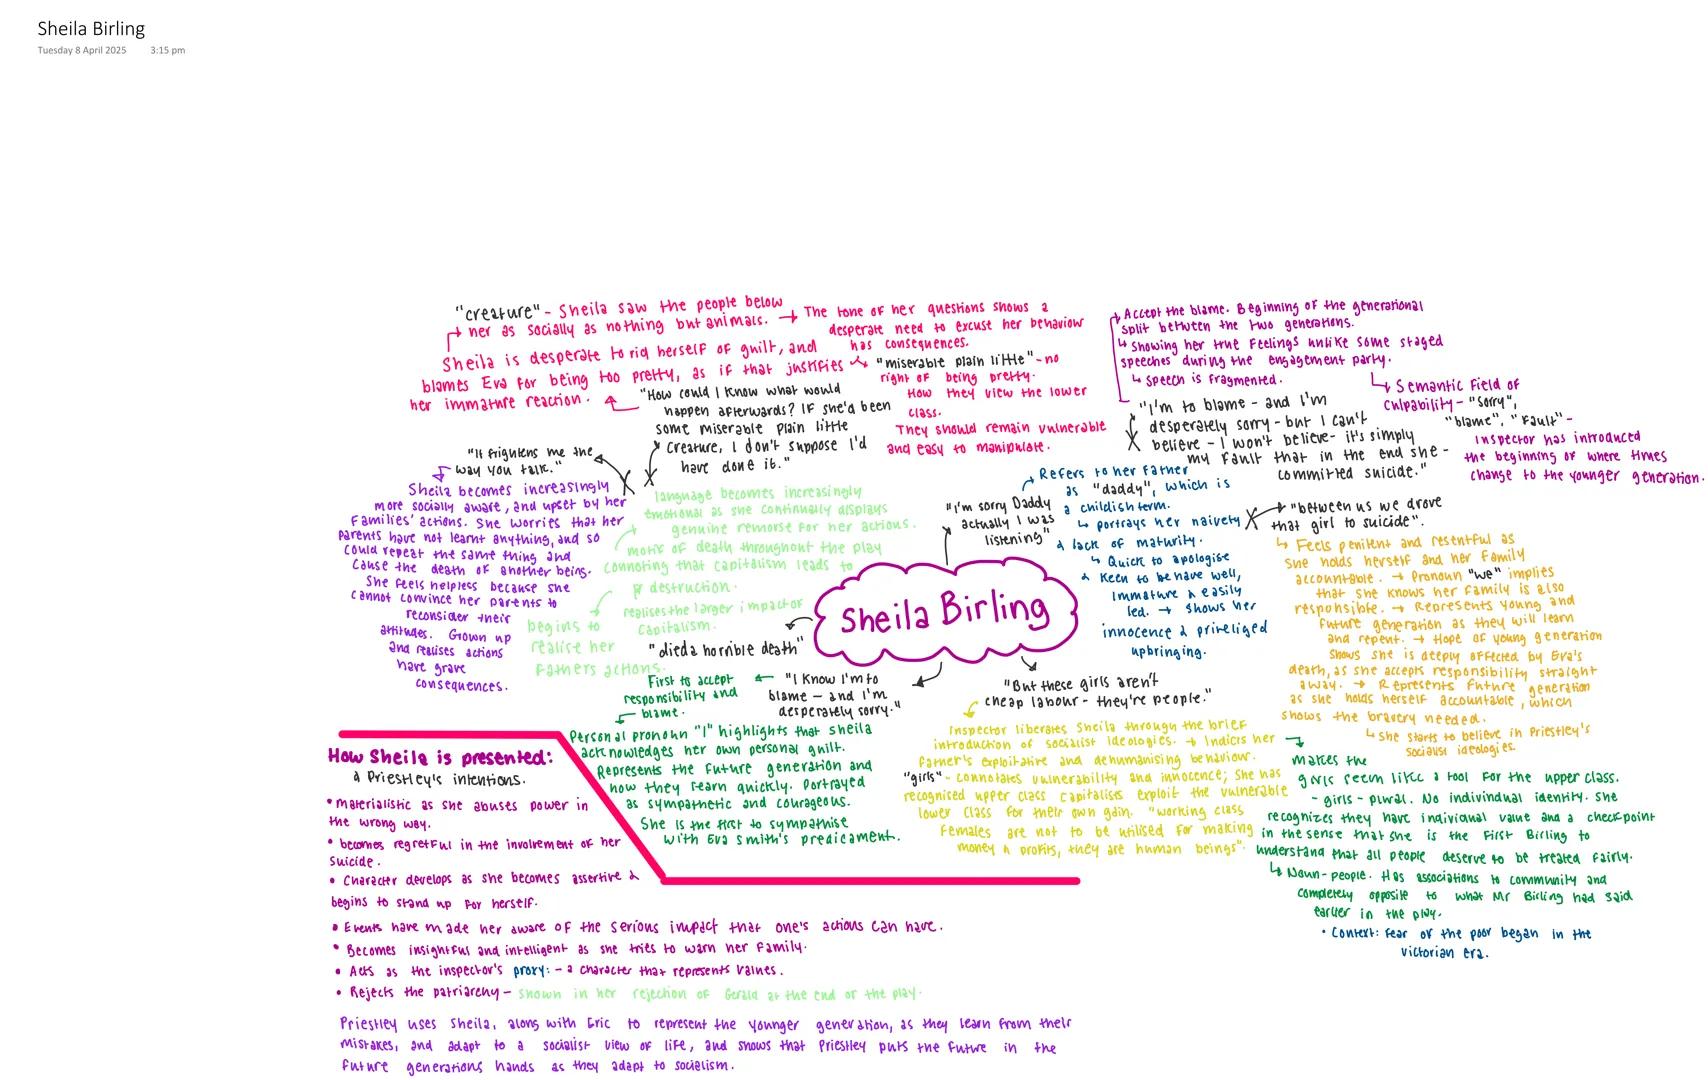 Sheila Birling
Tuesday 8 April 2025 3:15 pm
"creature" - Sheila saw the people below
her as socially as nothing but animals.
Sheila is desperate to rid herself of guilt, and
blames Eva for being too pretty, as if that justifies
her immature reaction.
The tone of her questions shows a
desperate need to excuse her behaviour
has consequences.
"miserable plain little" - no
right of being pretty.
How they view the lower
class.
They should remain vulnerable
and easy to manipulate.
"How could I know what would
happen afterwards? IF she'd been
some miserable plain little
Creature, I don't suppose I'd
have done it."
Accept the blame. Beginning of the generational
split between the two generations.
↳ Showing her true feelings unlike some staged
speeches during the engagement party.
↳ Speech is fragmented.
↳ Semantic Field of
culpability - "sorry",
"blame", "Fault" -
Inspector has introduced
the beginning of where times
change to the younger generation.
"I'm to blame - and I'm
desperately sorry - but I can't
believe - I won't believe - it's simply
my fault that in the end she -
committed suicide."
"It frightens me the
way you talk."
Sheila becomes increasingly
more socially aware, and upset by her
families' actions. She worries that her
parents have not learnt anything, and so
could repeat the same thing and
cause the death of another being.
She feels helpless because she
cannot convince her parents to
reconsider their
attitudes. Grown up
and realises actions
have grave
consequences.
language becomes increasingly
emotional as she continually displays
genuine remorse for her actions.
motif of death throughout the play
connoting that capitalism leads to
destruction.
realises the larger impact of
Capitalism.
begins to
realise her
Fathers actions.
"died a horrible death"
"I'm sorry Daddy
actually I was
listening"
Refers to her Father
as "daddy", which is
a childish term.
↳ portrays her naivety
& lack of maturity.
↳ Quick to apologise
& Keen to behave well,
Immature & easily
led. → Shows her
innocence & priveliged
upbringing.
"between us we drove
that girl to suicide".
↳ Feels penitent and resentful as
she holds herself and her family
accountable. → Pronoun "we" implies
that she knows her family is also
responsible. → Represents young and
future generation as they will learn
and repent. → Hope of young generation
shows she is deeply affected by Eva's
death, as she accepts responsibility straight
away. → Represents Future generation
as she holds herself accountable, which
shows the bravery needed.
↳ She starts to believe in Priestley's
socialist ideologies.
Sheila Birling
"I Know I'm to
blame - and I'm
desperately sorry."
First to accept
responsibility and
blame.
Personal pronoun "I" highlights that sheila
acknowledges her own personal guilt.
Represents the future generation and
how they learn quickly. Portrayed
as sympathetic and courageous.
She is the first to sympathise
with Eva Smith's predicament.
"But these girls aren't
cheap labour - they're people."
Inspector liberates Sheila through the brief
introduction of socialist ideologies. → Indicts her
father's exploitative and dehumanising behaviour.
"girls" - connotates vulnerability and innocence; she has
recognised upper class capitalists exploit the vulnerable
lower class for their own gain. "working class
Females are not to be utilised for making
money & profits, they are human beings".
makes the
girls seem like a tool for the upper class.
- girls - plural. No individual identity. She
recognizes they have individual value and a checkpoint
in the sense that she is the First Birling to
understand that all people deserve to be treated fairly.
↳ Noun - people. Has associations to community and
completely opposite to what Mr Birling had said
earlier in the play.
• Context: fear of the poor began in the
victorian era.
How Sheila is presented:
& Priestley's intentions.
• materialistic as she abuses power in
the wrong way.
• becomes regretful in the involvement of her
suicide.
• Character develops as she becomes assertive &
begins to stand up for herself.
• Events have made her aware of the serious impact that one's actions can have.
• Becomes insightful and intelligent as she tries to warn her family.
• Acts as the inspector's proxy: - a character that represents values.
• Rejects the patriarchy - shown in her rejection of Gerald at the end of the play.
Priestley uses Sheila, along with Eric to represent the younger generation, as they learn from their
mistakes, and adapt to a socialist view of life, and shows that Priestley puts the future in the
future generations hands as they adapt to socialism.